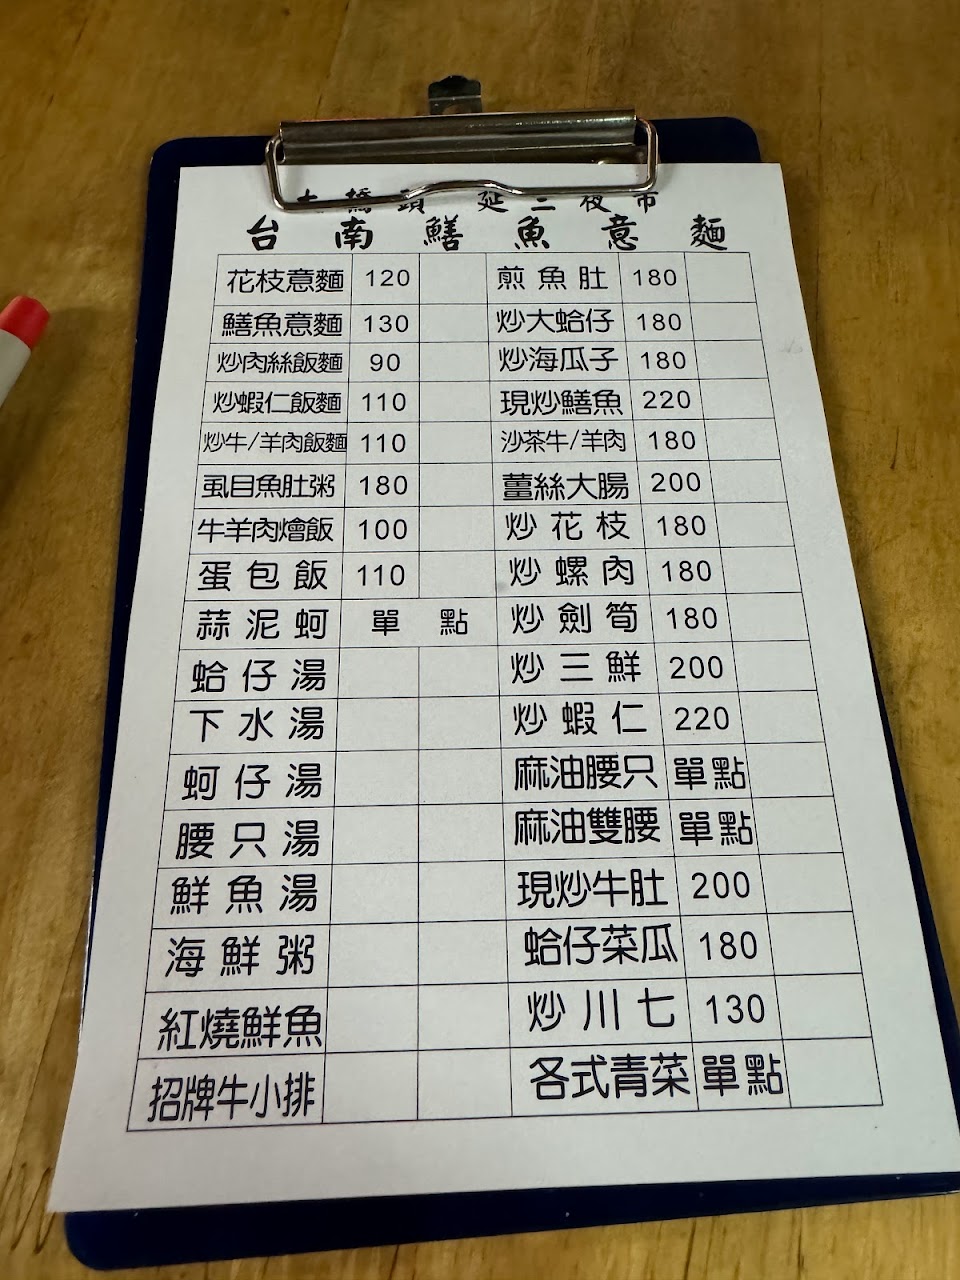 大橋頭 延三夜市
台南鱔魚意麵
花枝意麵 120 煎魚肚 180
鱔魚意麵 130 炒大蛤仔 180
炒肉絲飯麵 90 炒海瓜子 180
炒蝦仁飯麵 110 現炒鱔魚 220
炒牛/羊肉飯麵 110 沙茶牛/羊肉 180
虱目魚肚粥 180 薑絲大腸 200
牛羊肉燴飯 100 炒花枝 180
蛋包飯 110 炒螺肉 180
蒜泥蚵 單點 炒劍筍 180
蛤仔湯 炒三鮮 200
下水湯 炒蝦仁 220
蚵仔湯 麻油腰只 單點
腰只湯 麻油雙腰 單點
鮮魚湯 現炒牛肚 200
海鮮粥 蛤仔菜瓜 180
紅燒鮮魚 炒川七 130
招牌牛小排 各式青菜 單點